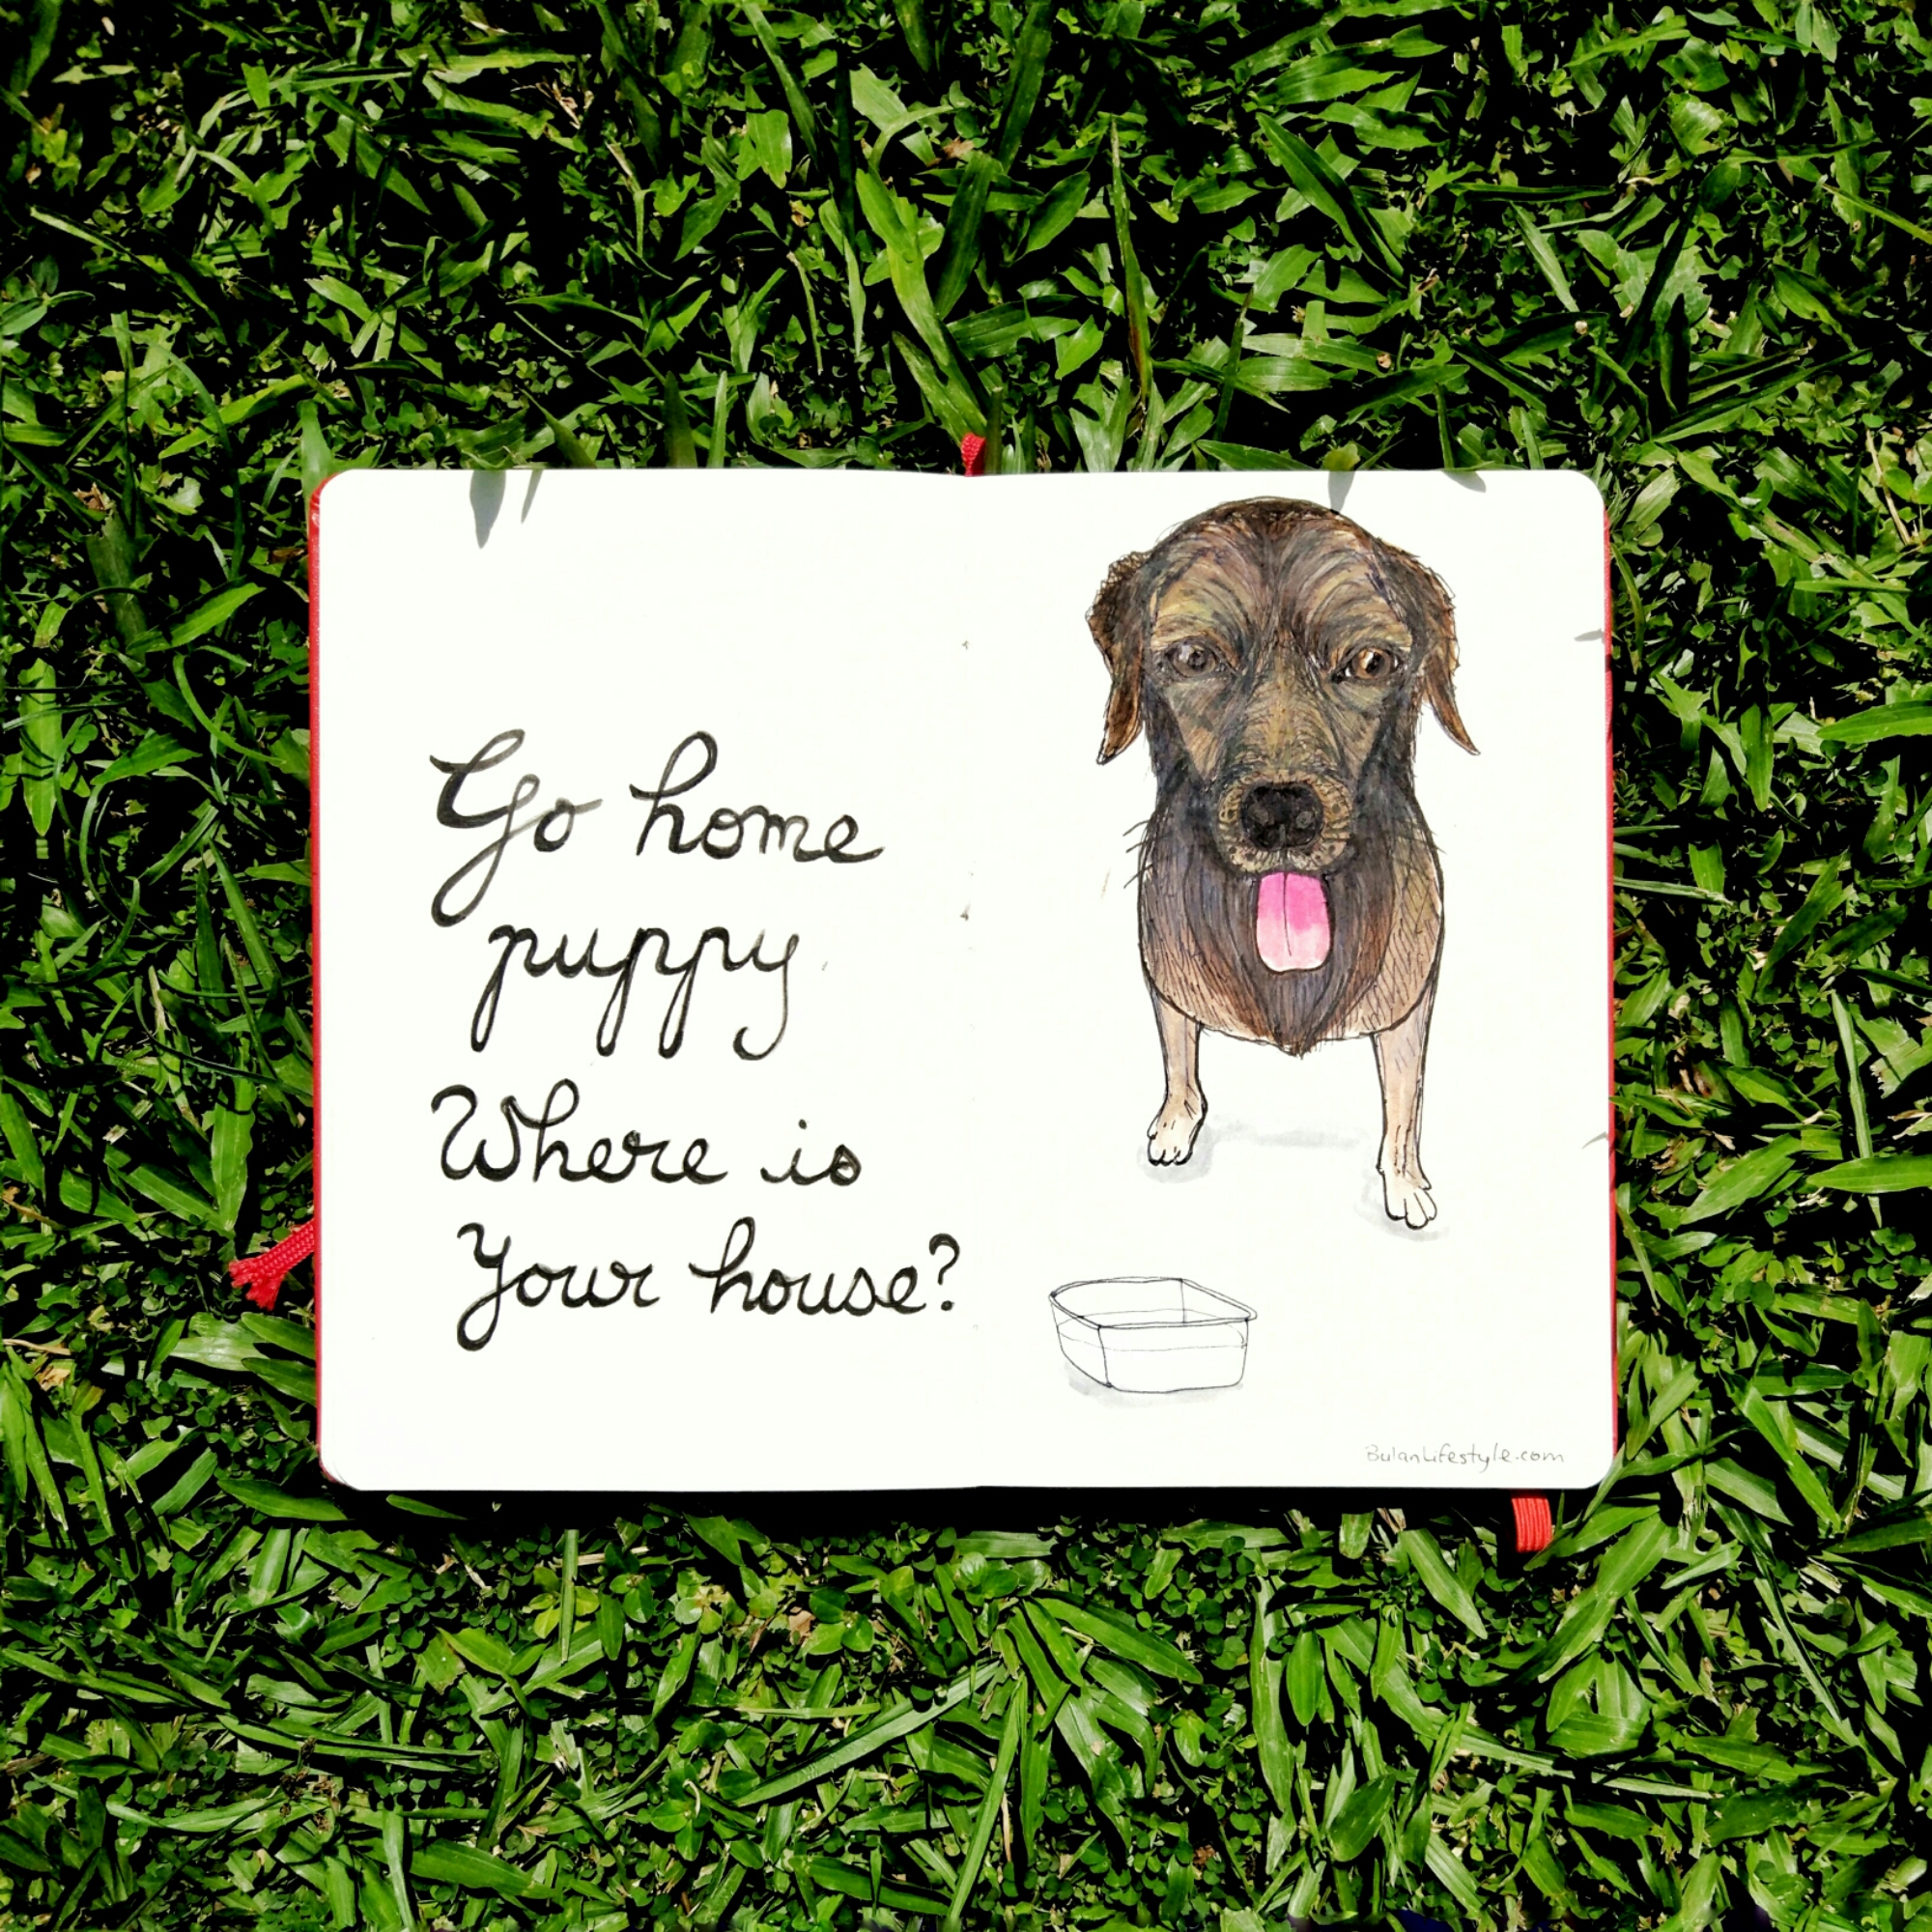 Go home
puppy
Where is
your house?
BulanLifestyle.com